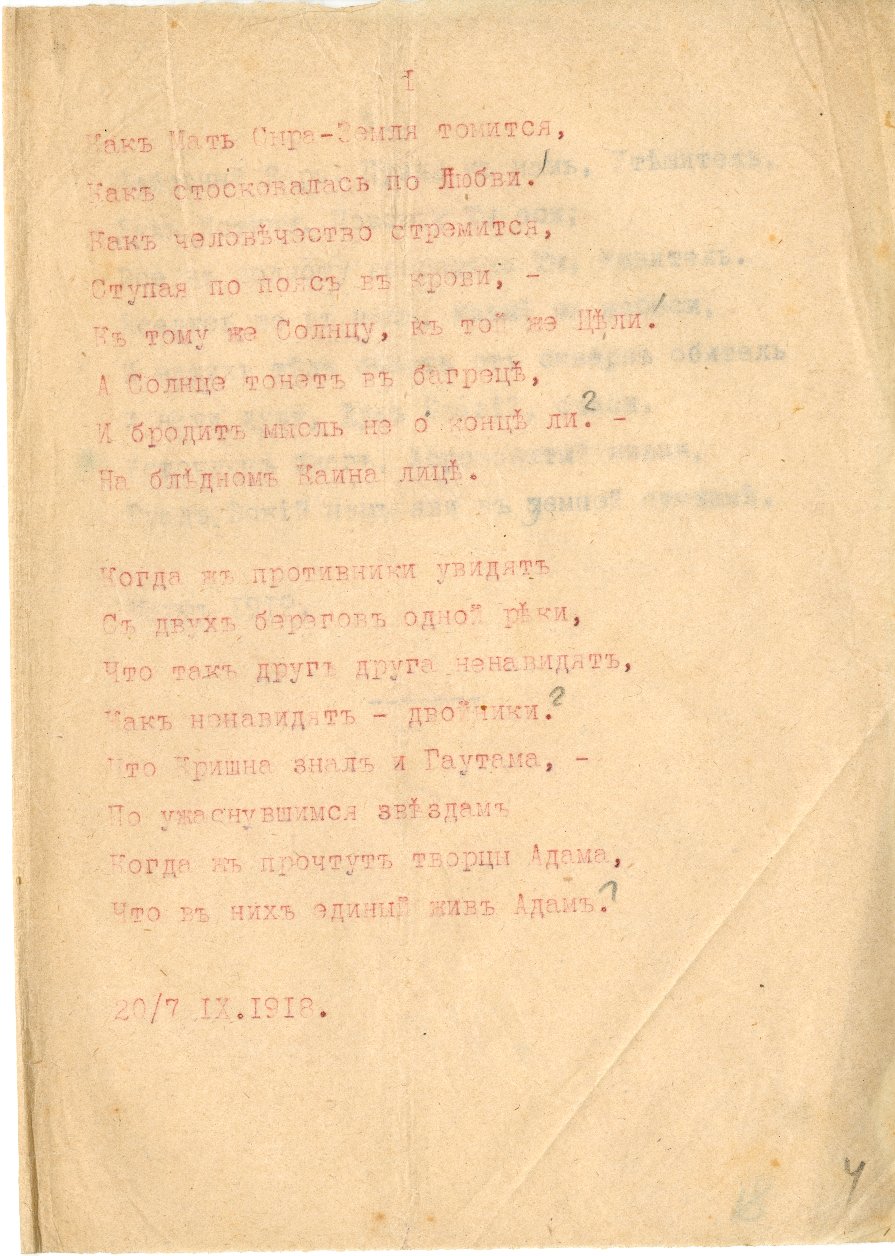 I
Какъ Мать Сыра-Земля томится,
Какъ стосковалась по Любви!
Какъ человѣчество стремится,
Ступая по поясъ въ крови, -
Къ тому же Солнцу, къ той же Цѣли!
А Солнце тонетъ въ багрецѣ,
И бродитъ мысль не о концѣ ли? -
На блѣдномъ Каина лицѣ.
Когда жъ противники увидятъ
Съ двухъ береговъ одной рѣки,
Что такъ другъ друга ненавидятъ,
Какъ ненавидятъ - двойники?
Что Кришна зналъ и Гаутама, -
По ужаснувшимся звѣздамъ
Когда жъ прочтутъ творцы Адама,
Что въ нихъ единый живъ Адамъ?
20/7 IX.1918.
4